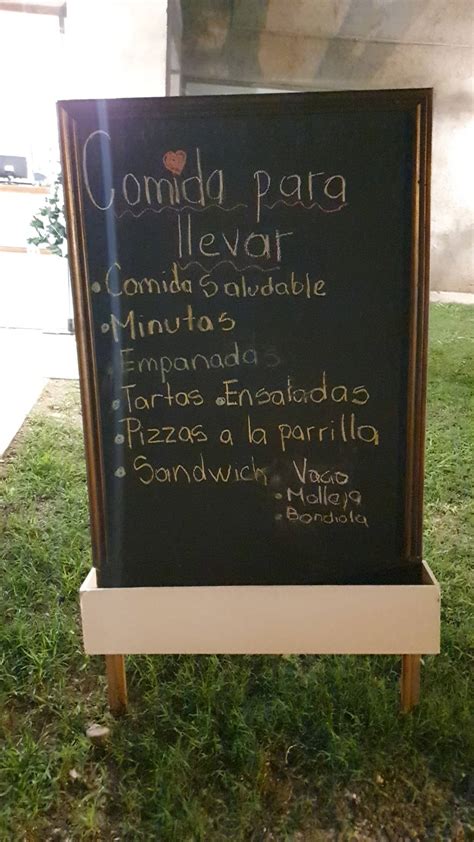 Comida para
llevar
• Comida Saludable
• Minutas
• Empanadas
• Tartas • Ensaladas
• Pizzas a la parrilla
• Sandwich • Vacio
• Molleja
• Bondiola